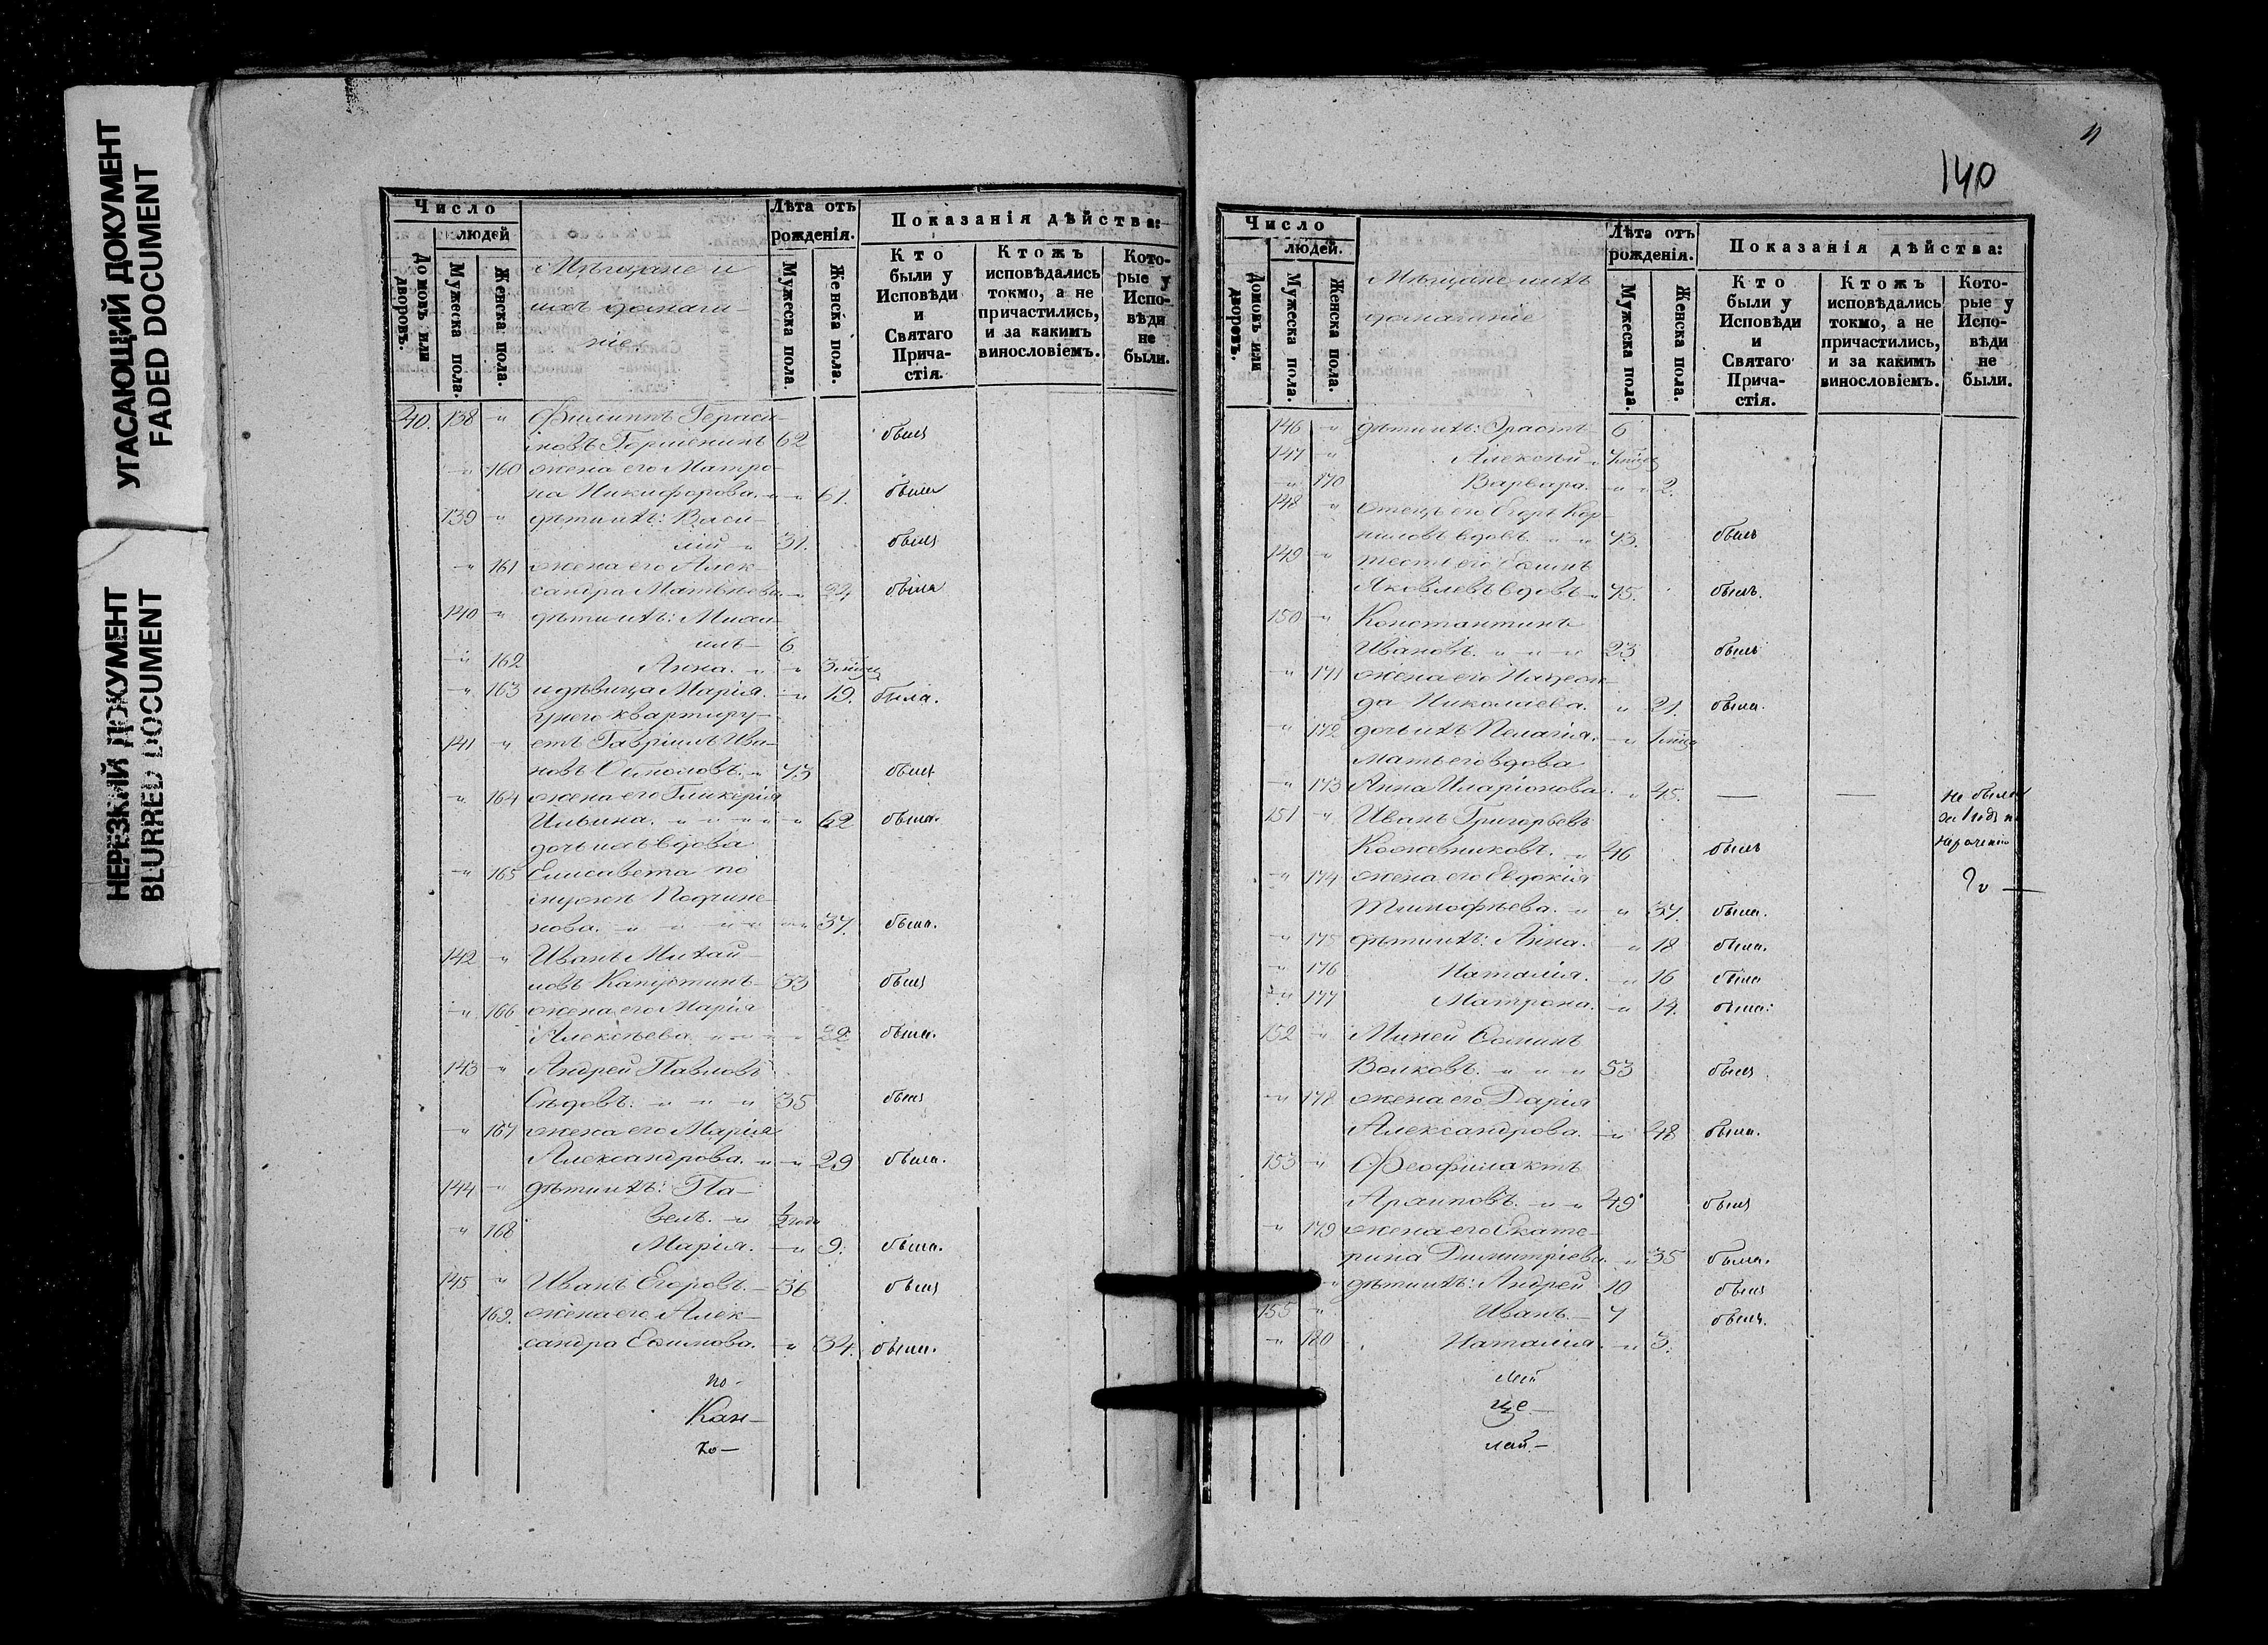 УГАСАЮЩИЙ ДОКУМЕНТ
FADED DOCUMENT
НЕРЕЗКИЙ ДОКУМЕНТ
BLURRED DOCUMENT
Число
людей
Домовъ или дворовъ.
Мужеска пола.
Женска пола.
Мѣщане и
ихъ домаш-
ніе.
Лѣта отъ
рожденія.
Мужеска пола.
Женска пола.
Показанія дѣйства:
Кто
были у
Исповѣди
и
Святаго
Прича-
стія.
Ктожъ
исповѣдались
токмо, а не
причастились,
и за какимъ
винословіемъ.
Кото-
рые у
Испо-
вѣди
не
были.
40. 138 " Филиппъ Гераси-
мовъ 62 былъ
" 160 жена его Матро-
на Никифорова. " " 61. была
139 " дѣти ихъ: Васи-
лій " 31. былъ
" 161 жена его Алек-
сандра Матвѣева " была
140 " дѣти ихъ: Миха-
илъ 6
" 162 Анна. " " 3 мѣсяц
" 163 и дѣвица Марія. " 19. была.
у него квартиру-
141 " етъ Гавріилъ Ива-
новъ 73 былъ
" 164 жена его Гликерія
Ильина. " " " " " 62 была.
дочь ихъ вдова
" 165 Елисавета по
мужѣ
нова. " " " " " " 37. была.
142 " Иванъ Михай-
ловъ Капустинъ 33 былъ
" 166 жена его Марія
Алексѣева " " " " была.
143 " Андрей Павловъ
Сѣдовъ. " " " 35 былъ
" 167 жена его Марія
Александрова. " " 29 была.
144 " дѣти ихъ: Па-
велъ. " 1/2 года
" 168 Марія. " 9. была.
145 " Иванъ Егоровъ. 36 былъ
169. жена его Алек-
сандра Ефимова. " 34. была.
по-
Кан-
хо-
11
140
Число
людей.
Домовъ или дворовъ.
Мужеска пола.
Женска пола.
Мѣщане и ихъ
домашніе
Лѣта отъ
рожденія.
Мужеска пола.
Женска пола.
Показанія дѣйства:
Кто
были у
Исповѣди
и
Святаго
Прича-
стія.
Ктожъ
исповѣдались
токмо, а не
причастились,
и за какимъ
винословіемъ.
Кото-
рые у
Испо-
вѣди
не
были.
146 " дѣти ихъ: Эрастъ 6
147 " Алексѣй "
" 170 Варвара. " " 2.
148 " отецъ его Егоръ Кор-
ниловъ вдовъ. " " 73. былъ
149 " тесть его
Яковлевъ вдовъ " 75. былъ.
150 " Константинъ
Ивановъ. " " " 23 былъ
" 171 жена его Надеж-
да Николаева. " 21. была.
" 172 дочь ихъ Пелагія. "
мать его вдова
" 173 Анна Иларіонова. " 45. — — не была
151 " Иванъ Григорьевъ
Кожевниковъ. " 46 былъ
" 174 жена его Евдокія
Тимофѣева. " " 37. была.
" 175 дѣти ихъ: Анна. " 18 была.
" 176 Наталія. " 16 была
" 177 Матрона. " 14. была:
152 " Миней
Волковъ. " " " 53 былъ
" 178 жена его Дарія
Александрова. " 48 была.
153 " Феофилактъ
Архиповъ. " " 49 былъ
" 179 жена его Екате-
рина Димитріева. " 35 была.
" дѣти ихъ: Андрей 10 былъ
155 " Иванъ. 7 былъ.
" 180 Наталія. " 3.
лій
ще-
лай-